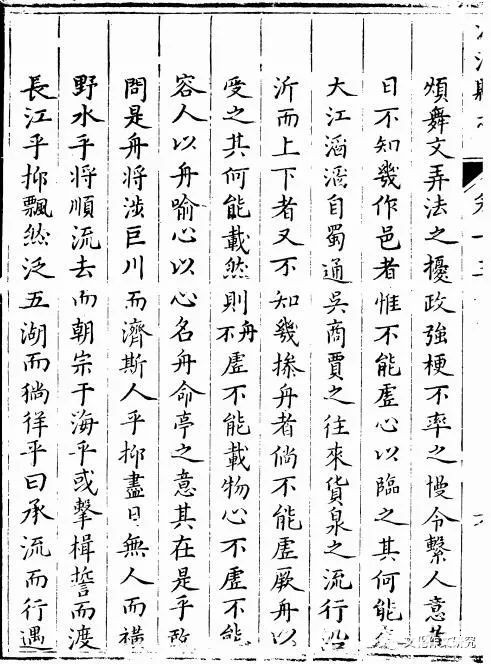 煩舞文弄法之擾政強梗不率之慢令繫人意
日不知幾作邑者惟不能虛心以臨之其何能
大江滔滔自蜀通吳商賈之往來貨泉之流行沿
沂而上下者又不知幾操舟者倘不能虛厥舟以
受之其何能載然則舟不虛不能載物心不虛不能
容人以舟喻心以心名舟命亭之意其在是乎
問是舟將涉巨川而濟斯人乎抑盡日無人而橫
野水乎將順流去而朝宗于海乎或擊楫誓而渡
長江乎抑飄然泛五湖而徜徉乎曰承流而行遇